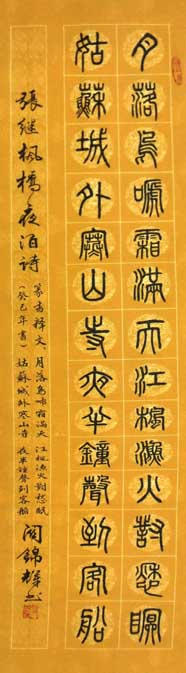 月落烏啼霜滿天江楓漁火對愁眠
姑蘇城外寒山寺夜半鐘聲到客船
張继楓橋夜泊詩
篆書释文 月落烏啼霜滿天 江楓漁火對愁眠
(癸巳年書) 姑蘇城外寒山寺 夜半鐘聲到客船